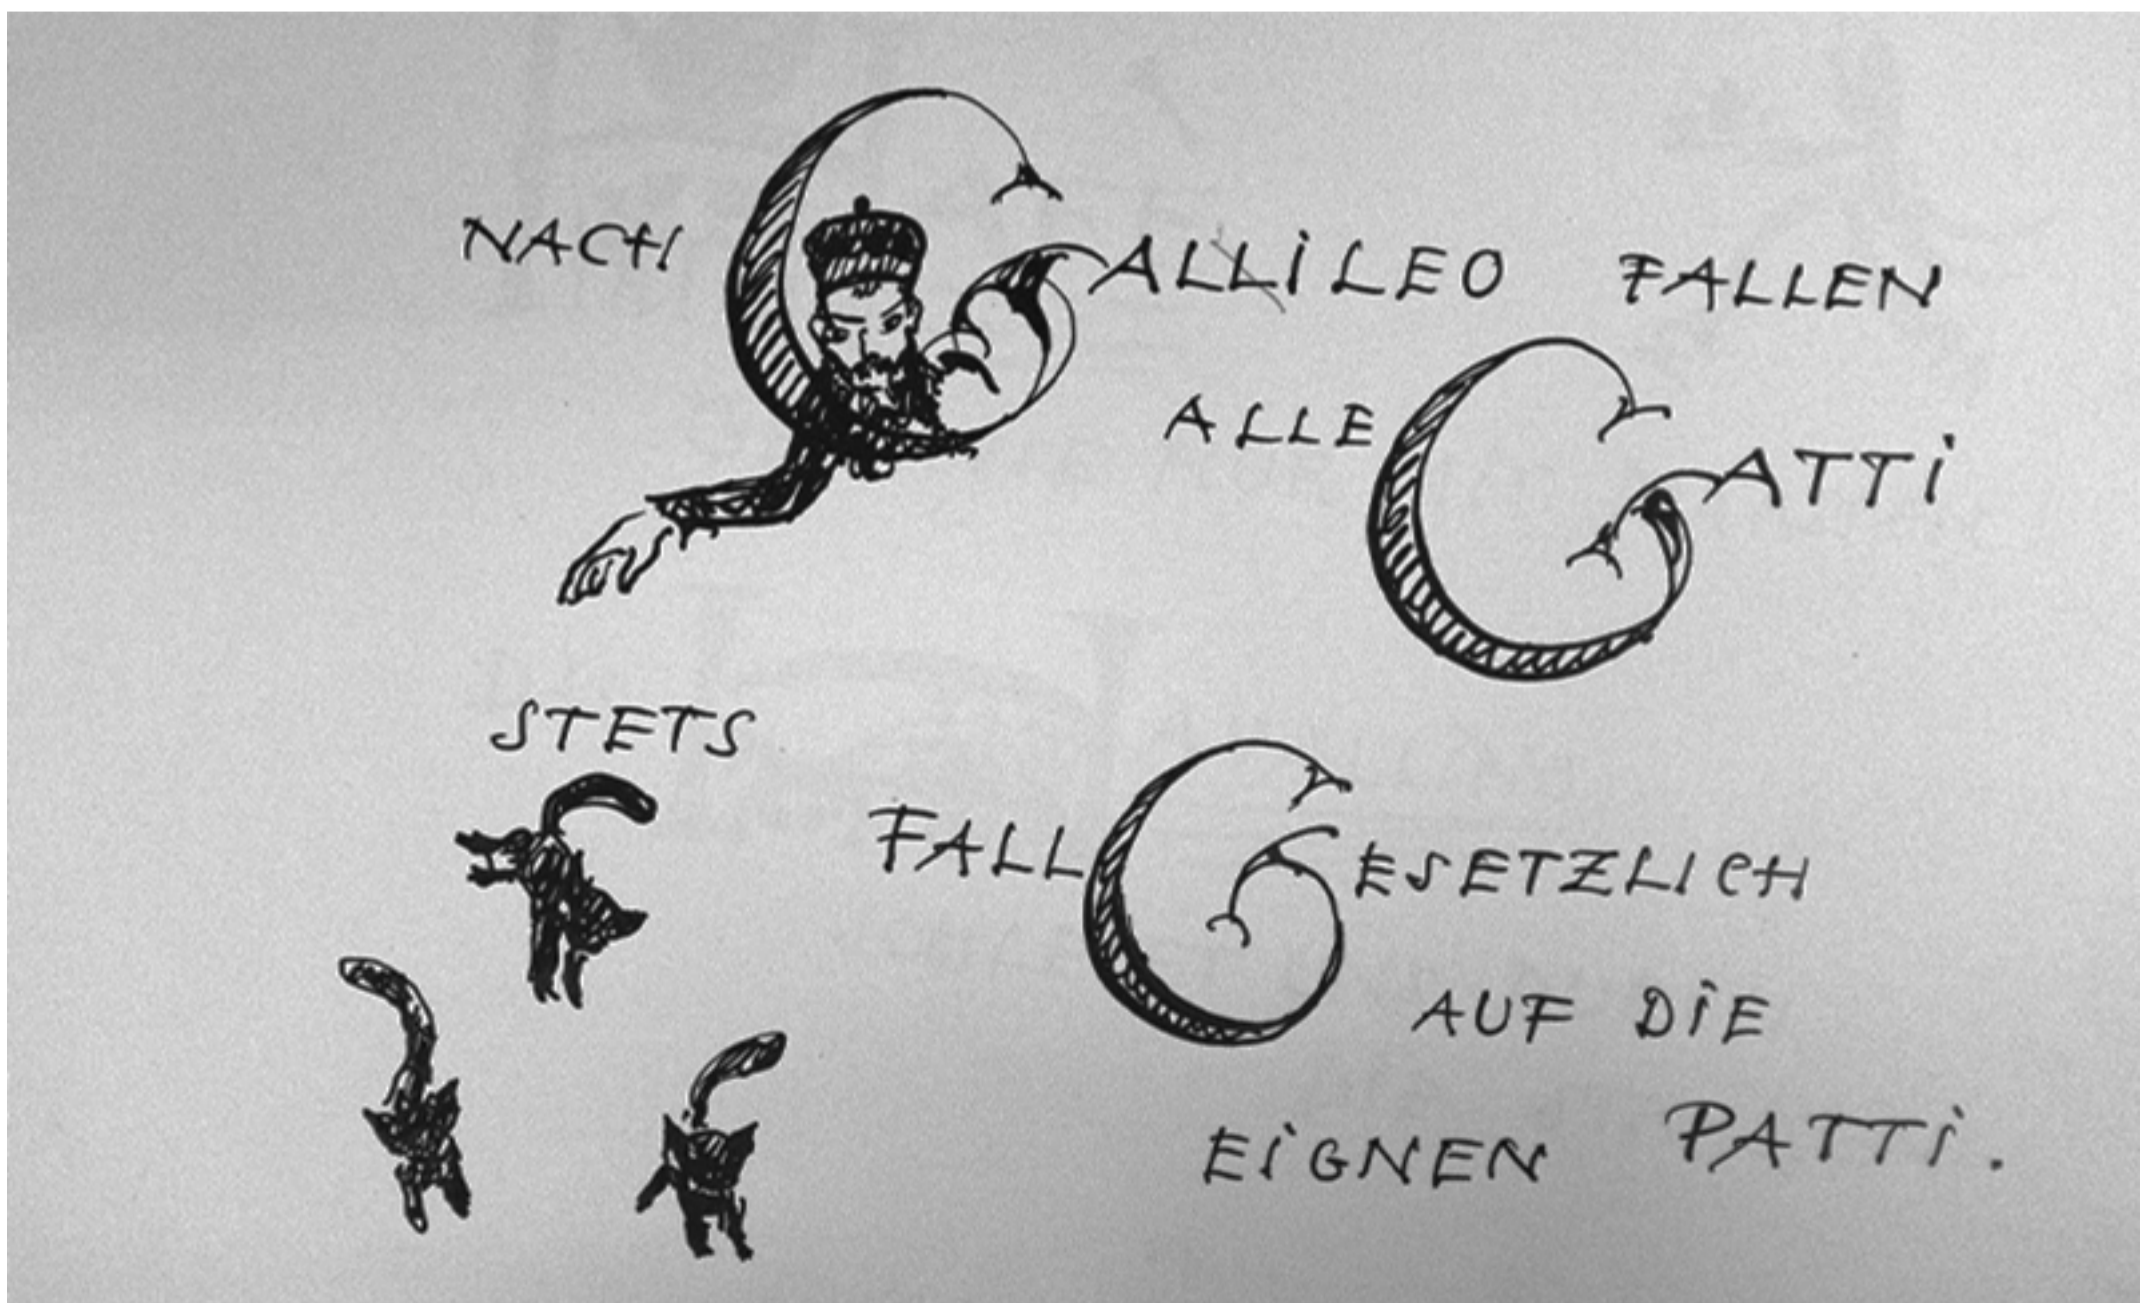 NACH GALLILEO FALLEN
ALLE GATTI
STETS
FALLGESETZLICH
AUF DIE
EIGNEN PATTI.